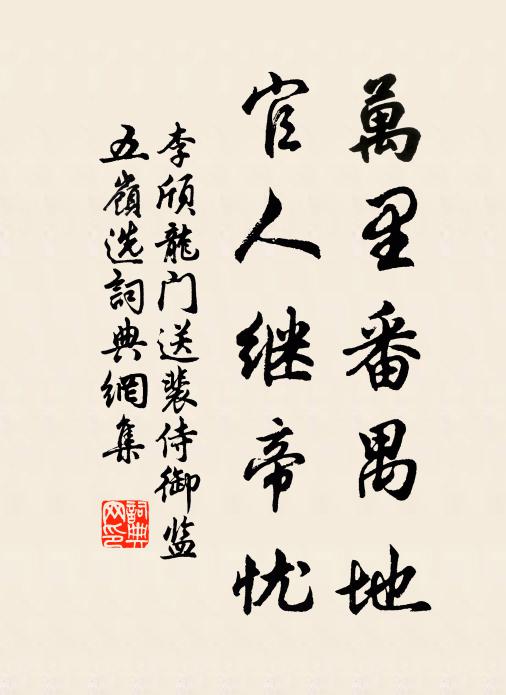 萬里番禺地
官人继帝忧
李颀龍门送裴侍御监
五嶺选詞典網集
詞典网印